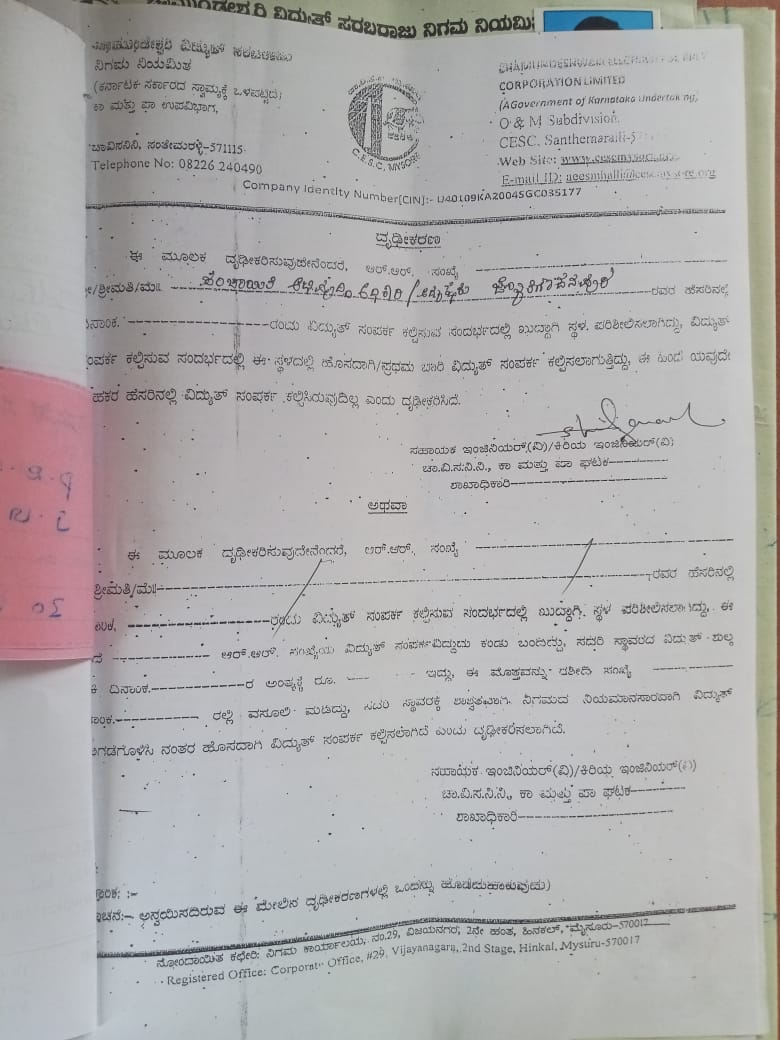 ವಿದ್ಯುತ್ ಸರಬರಾಜು ನಿಗಮ ನಿಯಮಿ
ನಿಗಮ ನಿಯಮಿತ
(ಕರ್ನಾಟಕ ಸರ್ಕಾರದ ಸ್ವಾಮ್ಯಕ್ಕೆ ಒಳಪಟ್ಟಿದೆ)
ಕಾ ಮತ್ತು ಪಾ ಉಪವಿಭಾಗ,
ಚಾವಿಸನಿನಿ, ಸಂತೇಮರಳ್ಳಿ-571115
Telephone No: 08226 240490
C.E.S.C. MYSORE
CORPORATION LIMITED
(AGovernment of Karnataka Undertaking,
O & M Subdivision
CESC, Santhemaralli-57
Web Site:
E-mail ID:
Company Identity Number[CIN]:- U40109KA2004SGC035177
ದೃಢೀಕರಣ
ಈ ಮೂಲಕ ದೃಢೀಕರಿಸುವುದೇನೆಂದರೆ, ಆರ್.ಆರ್. ಸಂಖ್ಯೆ
/ಶ್ರೀಮತಿ/ಮೆ॥ ರವರ ಹೆಸರಿನಲ್ಲಿ
ದಿನಾಂಕ. ರಂದು ವಿದ್ಯುತ್ ಸಂಪರ್ಕ ಕಲ್ಪಿಸುವ ಸಂದರ್ಭದಲ್ಲಿ ಖುದ್ದಾಗಿ ಸ್ಥಳ ಪರಿಶೀಲಿಸಲಾಗಿದ್ದು, ವಿದ್ಯುತ್
ಸಂಪರ್ಕ ಕಲ್ಪಿಸುವ ಸಂದರ್ಭದಲ್ಲಿ ಈ ಸ್ಥಳದಲ್ಲಿ ಹೊಸದಾಗಿ/ಪ್ರಥಮ ಬಾರಿ ವಿದ್ಯುತ್ ಸಂಪರ್ಕ ಕಲ್ಪಿಸಲಾಗುತ್ತಿದ್ದು, ಈ ಹಿಂದೆ ಯಾವುದೇ
ಹಕರ ಹೆಸರಿನಲ್ಲಿ ವಿದ್ಯುತ್ ಸಂಪರ್ಕ ಕಲ್ಪಿಸಿರುವುದಿಲ್ಲ ಎಂದು ದೃಢೀಕರಿಸಿದೆ.
ಸಹಾಯಕ ಇಂಜಿನಿಯರ್(ವಿ)/ಕಿರಿಯ ಇಂಜಿನಿಯರ್(ವಿ)
ಚಾ.ವಿ.ಸ.ನಿ.ನಿ., ಕಾ ಮತ್ತು ಪಾ ಘಟಕ
ಶಾಖಾಧಿಕಾರಿ
ಅಥವಾ
ಈ ಮೂಲಕ ದೃಢೀಕರಿಸುವುದೇನೆಂದರೆ, ಆರ್.ಆರ್. ಸಂಖ್ಯೆ
ಶ್ರೀಮತಿ/ಮೆ॥ ರವರ ಹೆಸರಿನಲ್ಲಿ
ರಂದು ವಿದ್ಯುತ್ ಸಂಪರ್ಕ ಕಲ್ಪಿಸುವ ಸಂದರ್ಭದಲ್ಲಿ ಖುದ್ದಾಗಿ ಸ್ಥಳ ಪರಿಶೀಲಿಸಲಾಗಿದ್ದು, ಈ
ಆರ್.ಆರ್. ಸಂಖ್ಯೆಯ ವಿದ್ಯುತ್ ಸಂಪರ್ಕವಿದ್ದುದು ಕಂಡು ಬಂದಿದ್ದು, ಸದುರಿ ಸ್ಥಾವರದ ವಿದ್ಯುತ್ ಶುಲ್ಕ
ದಿನಾಂಕ. ರ ಅಂತ್ಯಕ್ಕೆ ರೂ. ಇದ್ದು, ಈ ಮೊತ್ತವನ್ನು ರಶೀದಿ ಸಂಖ್ಯೆ
ರಲ್ಲಿ ವಸೂಲಿ ಮಾಡಿದ್ದು, ಸದರಿ ಸ್ಥಾವರಕ್ಕೆ ಶಾಶ್ವತವಾಗಿ ನಿಗಮದ ನಿಯಮಾನಸಾರವಾಗಿ ವಿದ್ಯುತ್
ನಂತರ ಹೊಸದಾಗಿ ವಿದ್ಯುತ್ ಸಂಪರ್ಕ ಕಲ್ಪಿಸಲಾಗಿದೆ ಎಂದು ದೃಢೀಕರಿಸಲಾಗಿದೆ.
ಸಹಾಯಕ ಇಂಜಿನಿಯರ್(ವಿ)/ಕಿರಿಯ ಇಂಜಿನಿಯರ್(ವಿ)
ಚಾ.ವಿ.ಸ.ನಿ.ನಿ., ಕಾ ಮತ್ತು ಪಾ ಘಟಕ
ಶಾಖಾಧಿಕಾರಿ
ಅನ್ವಯಿಸದಿರುವ ಈ ಮೇಲಿನ ದೃಢೀಕರಣಗಳಲ್ಲಿ ಒಂದನ್ನು ಹೊಡೆದುಹಾಕುವುದು)
ನೋಂದಾಯಿತ ಕಛೇರಿ: ನಿಗಮ ಕಾರ್ಯಾಲಯ, ನಂ.29, ವಿಜಯನಗರ, 2ನೇ ಹಂತ, ಹಿನಕಲ್, ಮೈಸೂರು-570017
Registered Office: Corporate Office, #29, Vijayanagara, 2nd Stage, Hinkal, Mysuru-570017